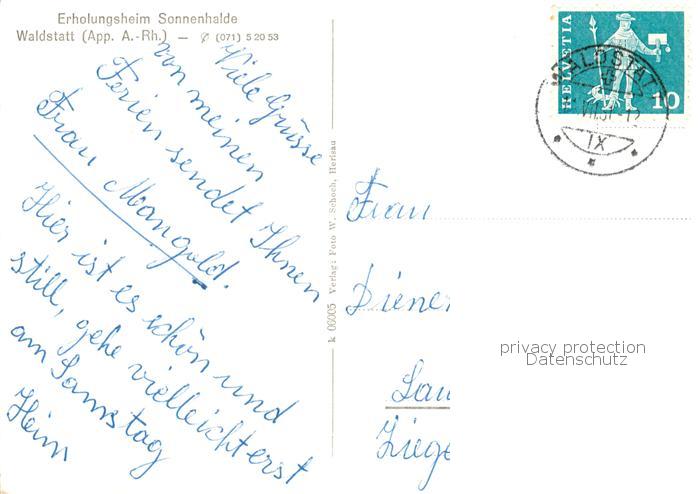 Erholungsheim Sonnenhalde
Waldstatt (App. A.-Rh.) — ✆ (071) 5 20 53
Viele Grüsse
von meinen
Ferien sendet Ihnen
Frau Mangold.
Hier ist es schön und
still, gehe vielleicht erst
am Samstag
Heim
k 06005 Verlag: Foto W. Schoch, Herisau
HELVETIA
10
WALDSTATT
IX
Frau
Diener
Lau
Ziege
privacy protection
Datenschutz